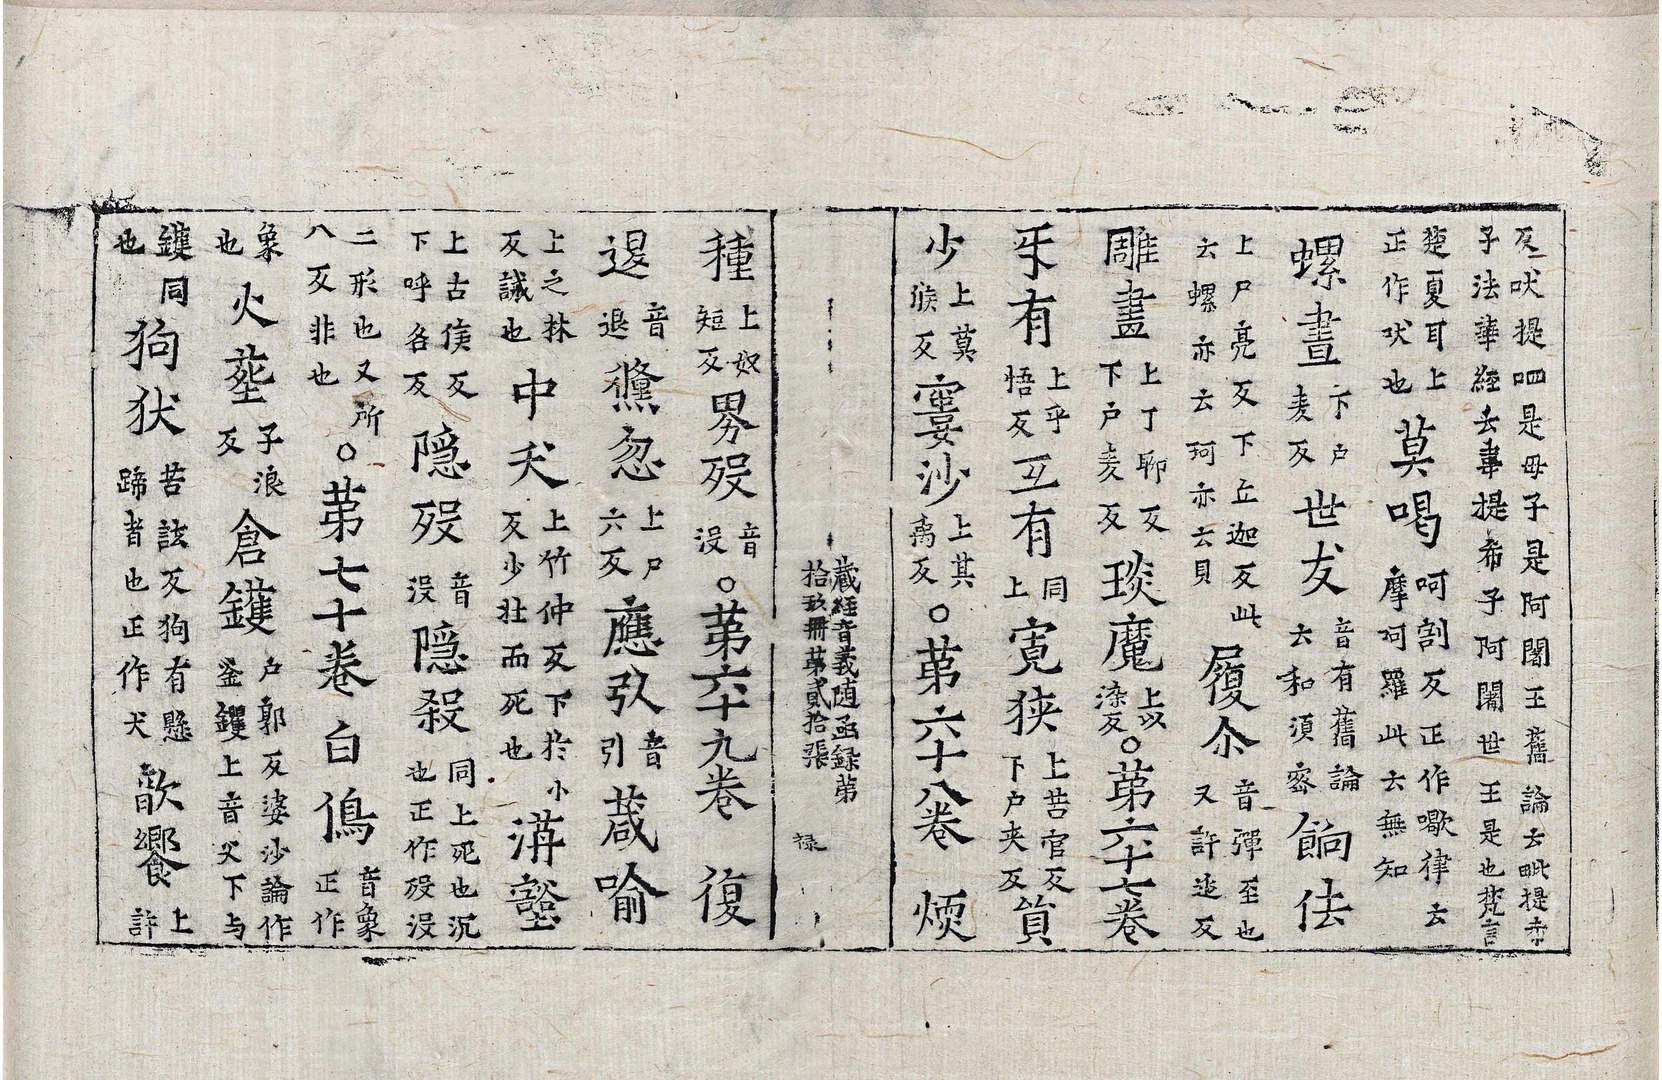 反吠提呬是母子是阿闍王舊論云毗提亦
子法華經云韋提希子阿闍世王是也梵言
楚夏耳上
正作吠也
莫喝
呵割反正作歇律云
摩呵羅此云無知
螺畫
下户
麦反
世友
音有舊論
云和須密
餉佉
上尸亮反下丘迦反此
云螺亦云珂亦云貝
履尒
音彈至也
又許迩反
雕畫
上丁聊反
下户麦反
琰魔
上以
染反
○第六十七卷
牙有
上乎
悟反
互有
同
上
寬狭
上苦官反
下户夹反
筫
少
上莫
猴反
寠沙
上其
禹反
○第六十八卷
煗
藏經音義随函録第
拾玖冊第貳拾張
禄
種
上奴
短反
男歿
音
没
○第六十九卷
復
退
音
退
儵忽
上尸
六反
應引
音
引
葴喻
上之林
反誡也
中夭
上竹仲反下於小
反少壯而死也
溝壑
上古侯反
下呼各反
隠歿
音
没
隠殺
同上死也沉
也正作歿没
二形也又所
八反非也
○第七十卷
白鴋
音象
正作
象
也
火塟
子浪
反
倉鑊
户郭反婆沙論作
釜鑊上音父下与
鑊同
也
狗狀
苦詃反狗有懸
蹄者也正作犬
歆饗
上
許